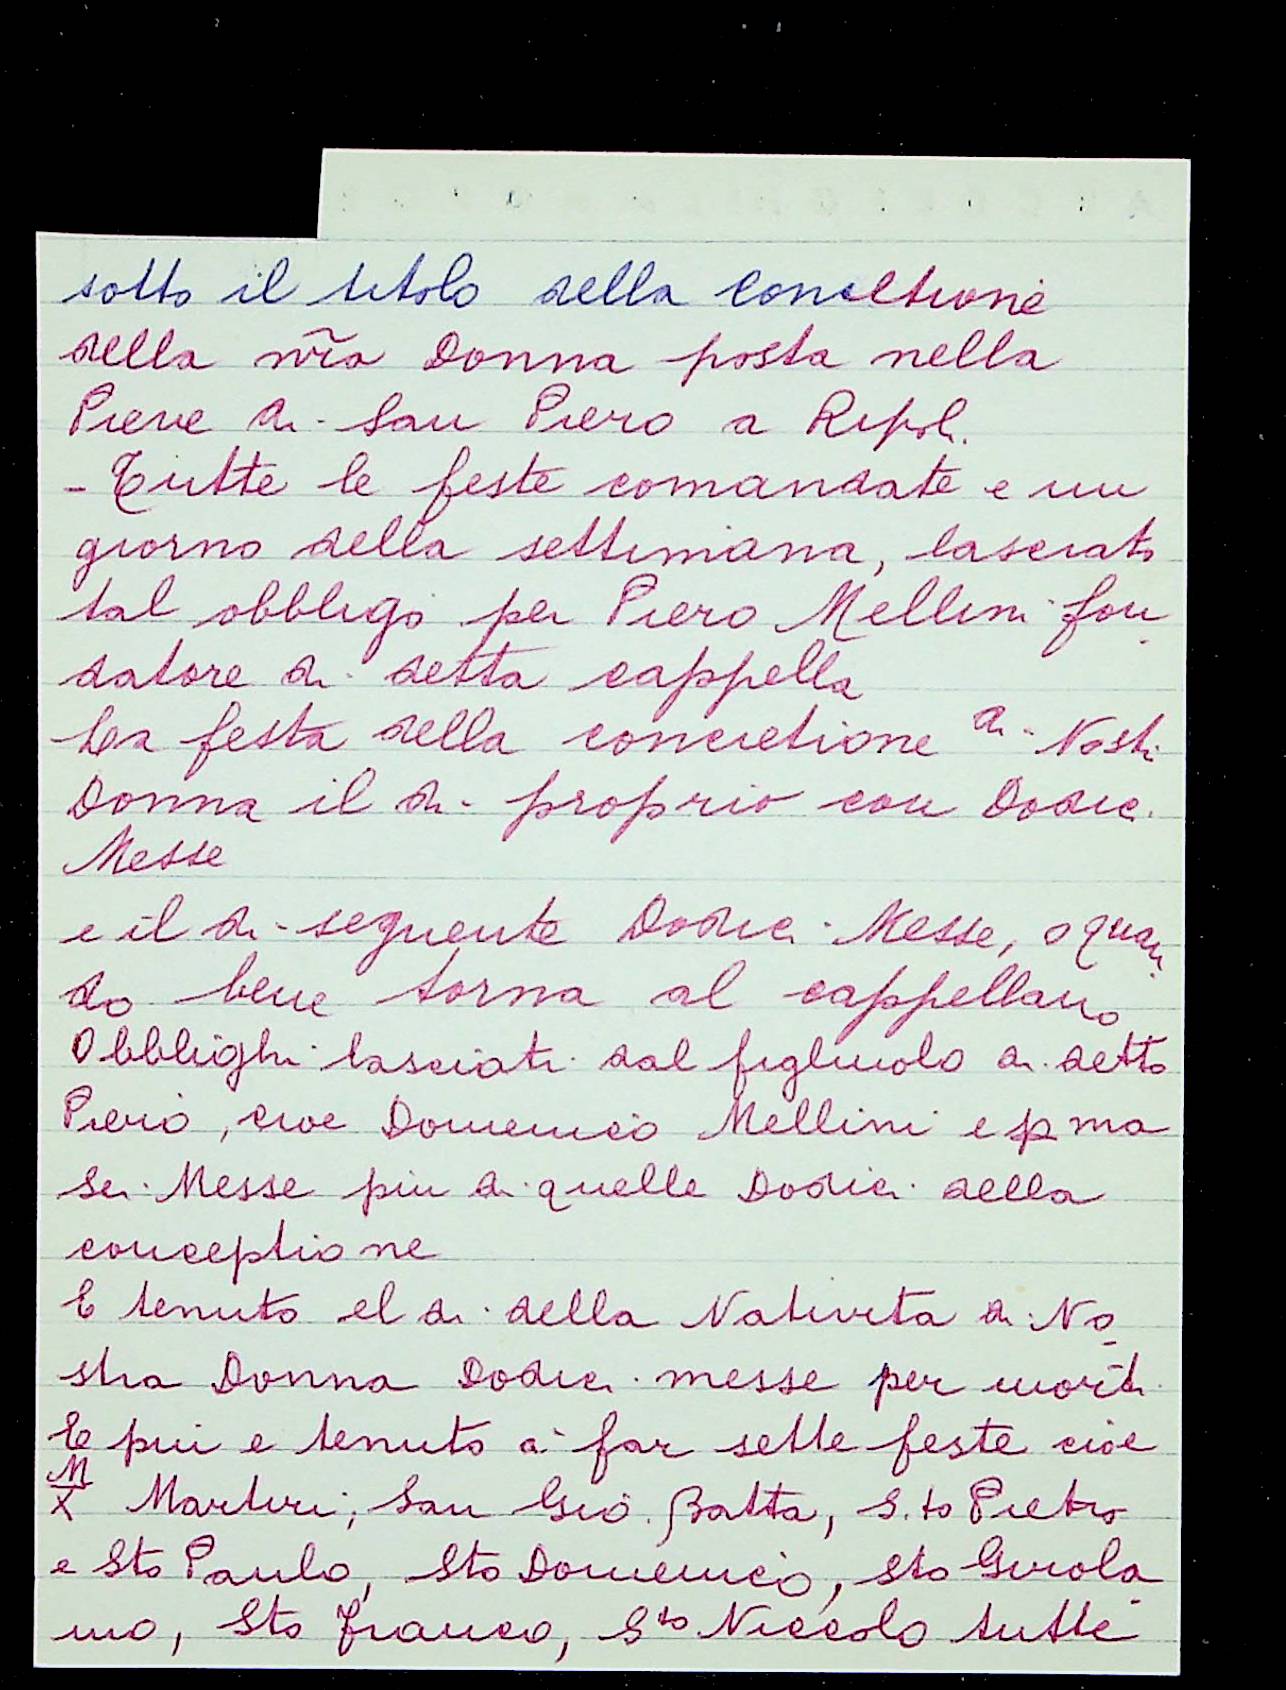 sotto il titolo della Concetione
della nr̃a Donna posta nella
Pieve di San Piero a Ripoli.
- Tutte le feste comandate e un
giorno della settimana, lasciato
tal obbligo per Piero Mellini fon
datore di detta cappella
La festa della concietione di Nostr
Donna il di proprio con Dodici
Messe
e il di seguente Dodici Messe, o quan
do bene torna al cappellano
Obblighi lasciati dal figliuolo di detto
Piero, cioe Domenico Mellini e p ma
sei Messe piu di quelle Dodici della
conceptione
E tenuto el di della Nativita di No
stra Donna Dodici messe per morti
E piu e tenuto a far sette feste cioe
M
X Martiri, San Gio. Batta, S.to Pietro
e Sto Paulo, Sto Domenico, Sto Girola
mo, Sto Franco, Sto Niccolo tutte